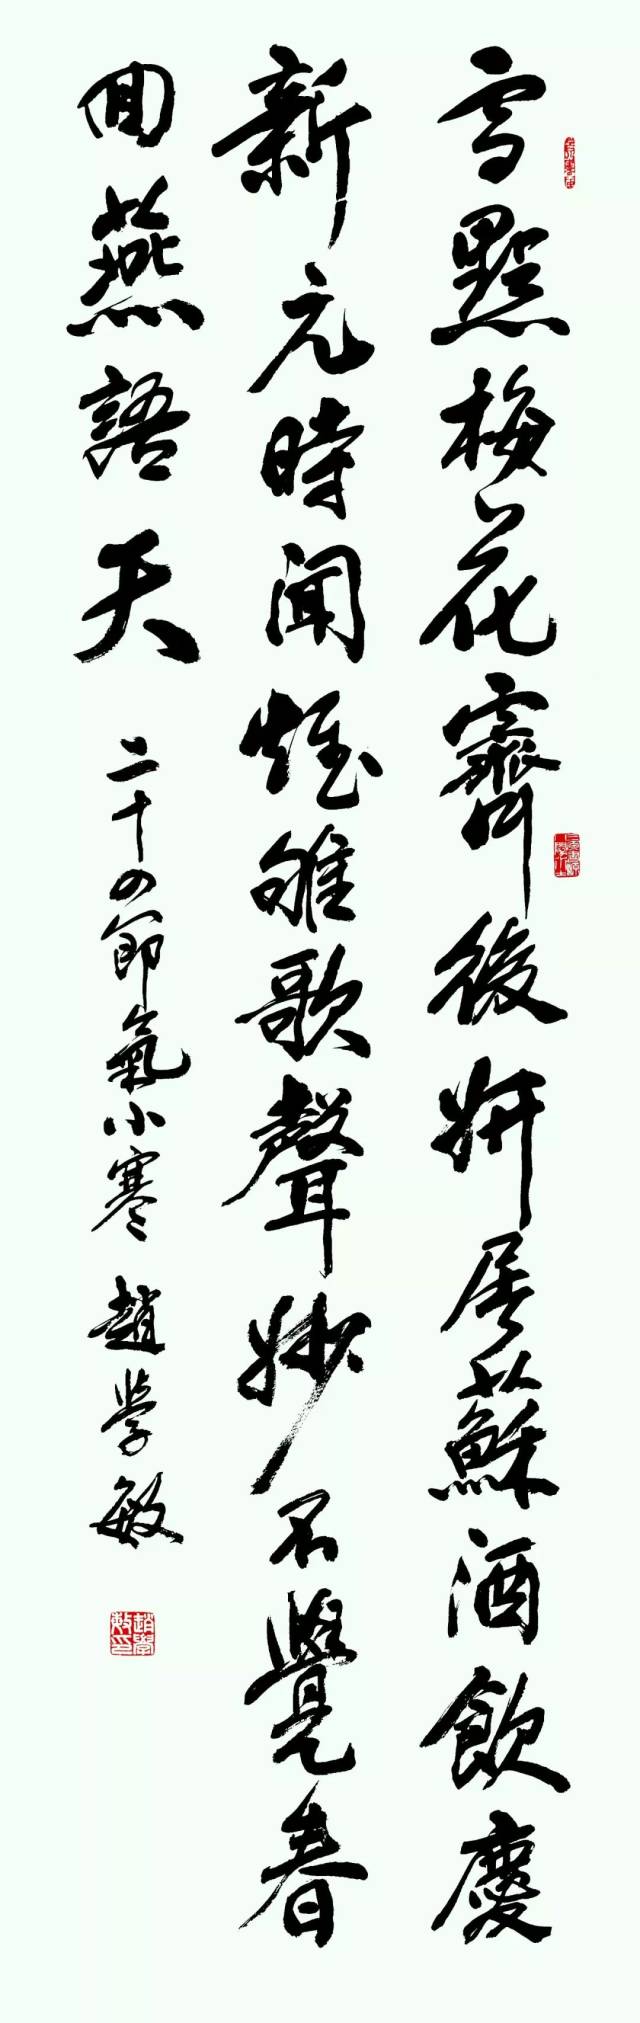 雪點梅花霽後妍屠蘇酒飲慶
新元時聞雉雊歌聲妙不覺春
回燕語天
二十四節氣小寒 趙學敏
趙學敏印